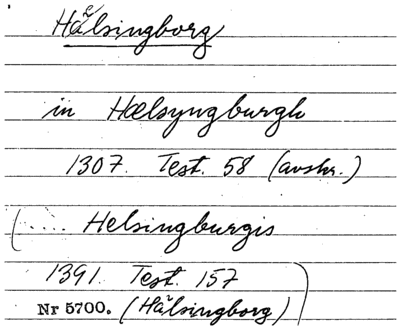 Hälsingborg
in Hælsyngburgh
1307. Test. 58 (avskr.)
(.... Helsingburgis
1391. Test. 157
Nr 5700. (Hälsingborg))